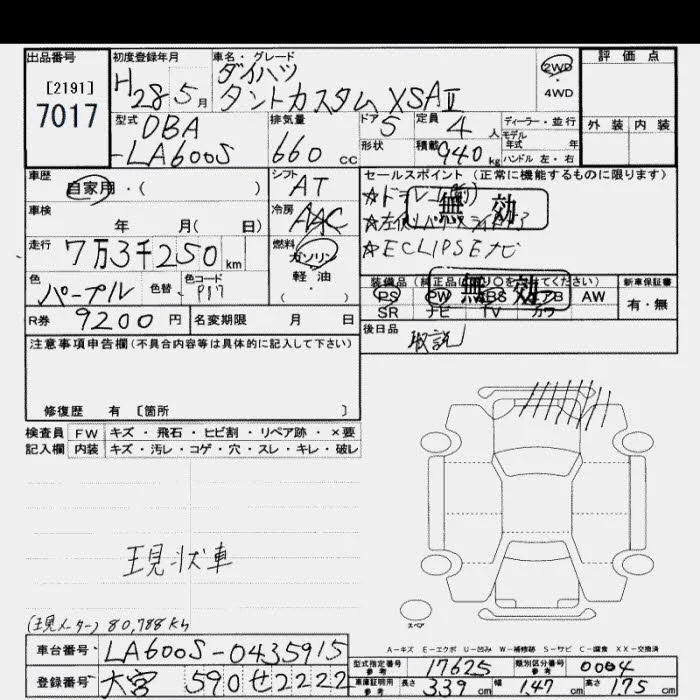 出品番号
[2191]
7017
初度登録年月
H28 5月
車名・グレード
ダイハツ
タントカスタム XSAⅡ
2WD
・
4WD
評価点
外装 内装
型式
DBA
-LA600S
排気量
660 cc
ドア
5
定員
4 人
形状
積載
940 kg
ディーラー・並行
モデル
年式 年
ハンドル 左・右
車歴
自家用・( )
シフト
AT
車検
年 月( 日)
冷房
AAC
走行
7万3千250 km
燃料
ガソリン
軽油
・
( )
色
パープル
色替
色コード
P17
R券
9200 円
名変期限 月 日
セールスポイント (正常に機能するものに限ります)
☆ドラレコ(前)
☆左側
☆ECLIPSEナビ
無効
装備品
無効
PS PW ABS AW
SR ナビ TV カワ
新車保証書
有・無
後日品
取説
注意事項申告欄(不具合内容等は具体的に記入して下さい)
修復歴 有 〔箇所 〕
検査員 FW キズ・飛石・ヒビ割・リペア跡・×要
記入欄 内装 キズ・汚レ・コゲ・穴・スレ・キレ・破レ
現状車
(現メーター) 80,788km
スペア
A-キズ E-エクボ U-凹み W-補修跡 S-サビ C-腐食 XX-交換済
車台番号 LA600S-0435915
登録番号 大宮 590 せ 2222
型式指定番号
参考
17625
類別区分番号
参考
0004
車庫証明用
参考
長さ 339 cm 幅 147 cm 高さ 175 cm